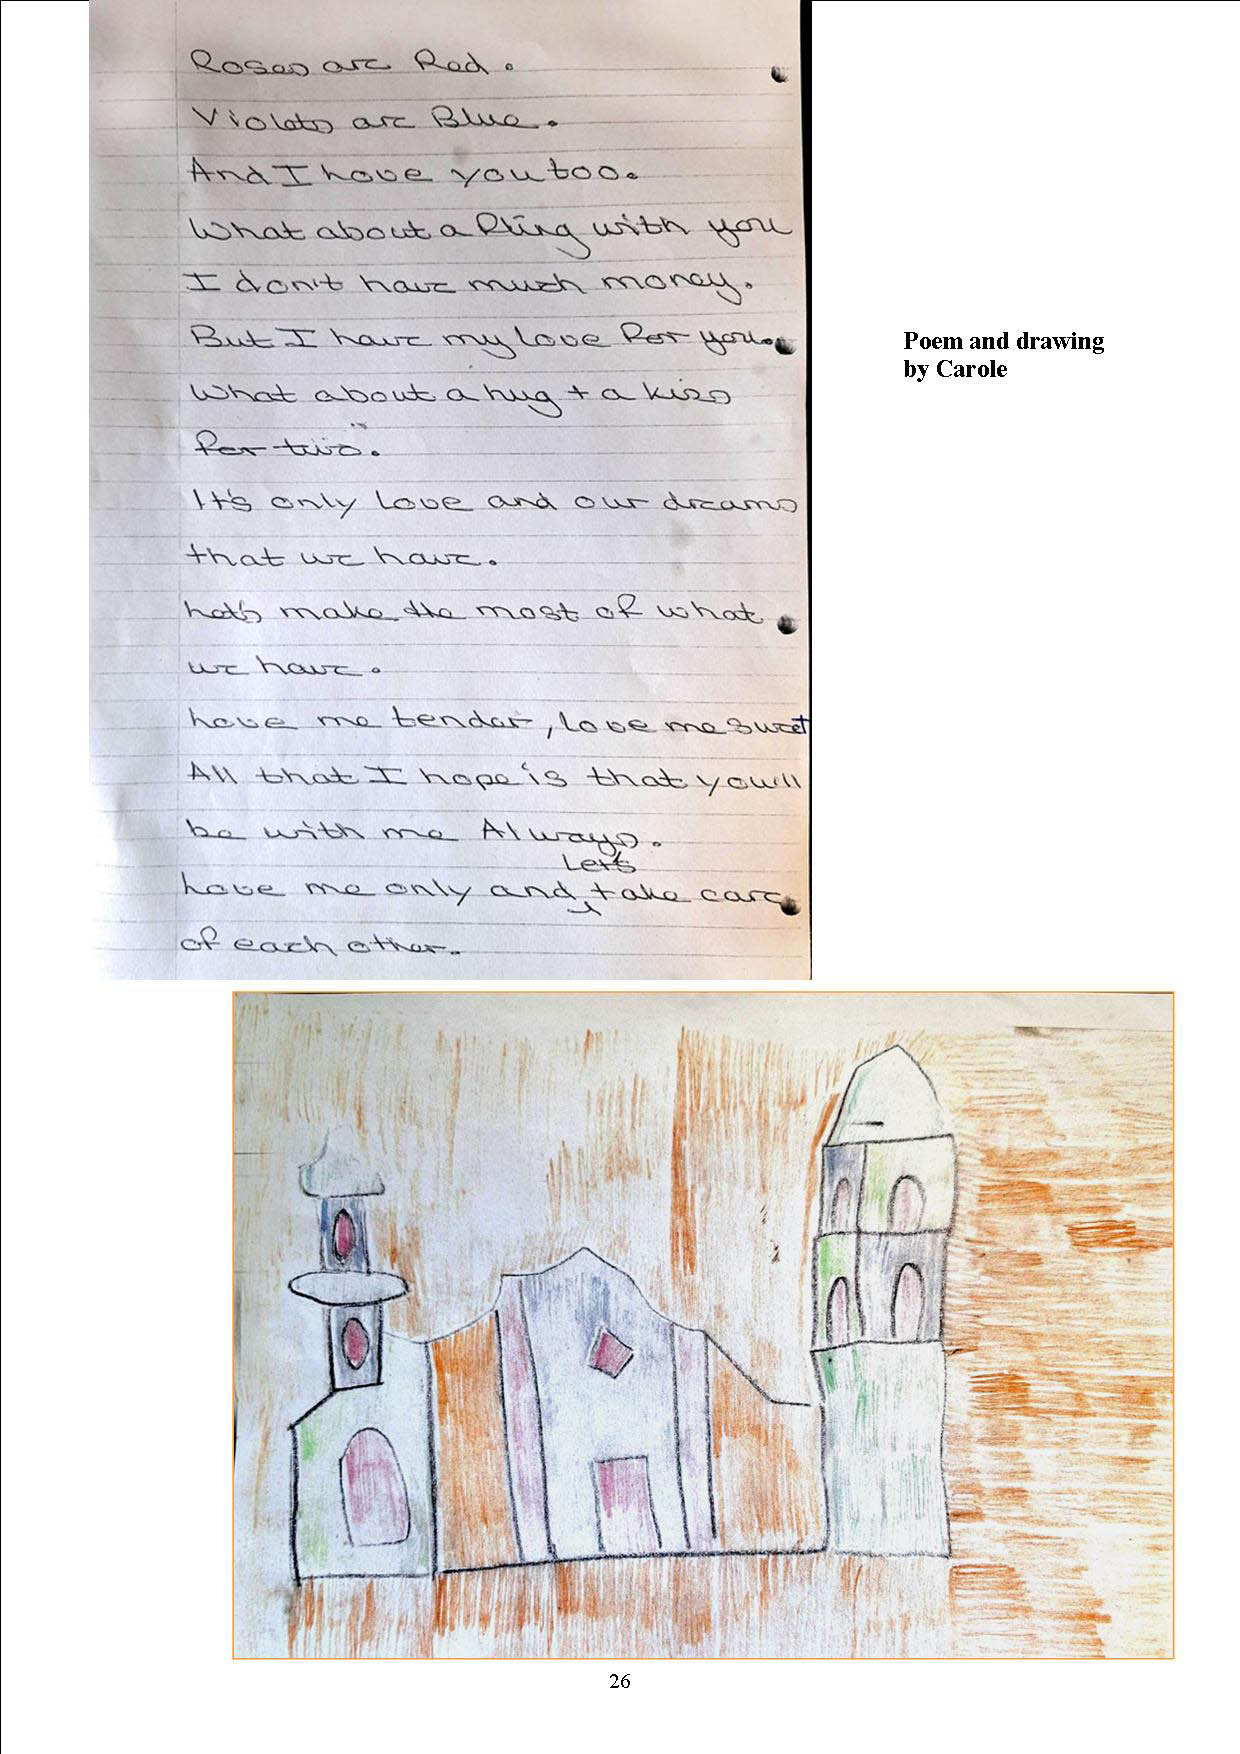 Roses are Red.
Violets are Blue.
And I Love you too.
What about a fling with you
I don't have much money.
But I have my love for you.
What about a hug + a kiss
for two.
It's only love and our dreams
that we have.
Let's make the most of what
we have.
Love me tender, love me sweet
All that I hope is that you'll
be with me Always.
Let's
Love me only and take care
of each other.
Poem and drawing
by Carole
26